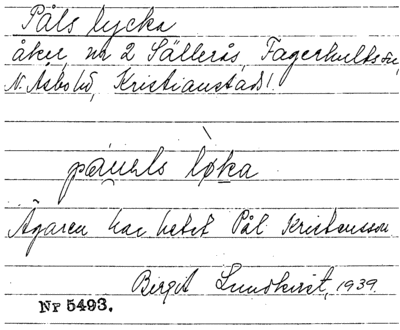 Påls lycka
åker, nr 2 Sällerås, Fagerhults sn,
N. Åsbo hd, Kristianstads l.
påu̯ls lø̀ka
Ägaren har hetat Pål Kristensson
Birgit Lundkvist, 1939.
Nr 5493.